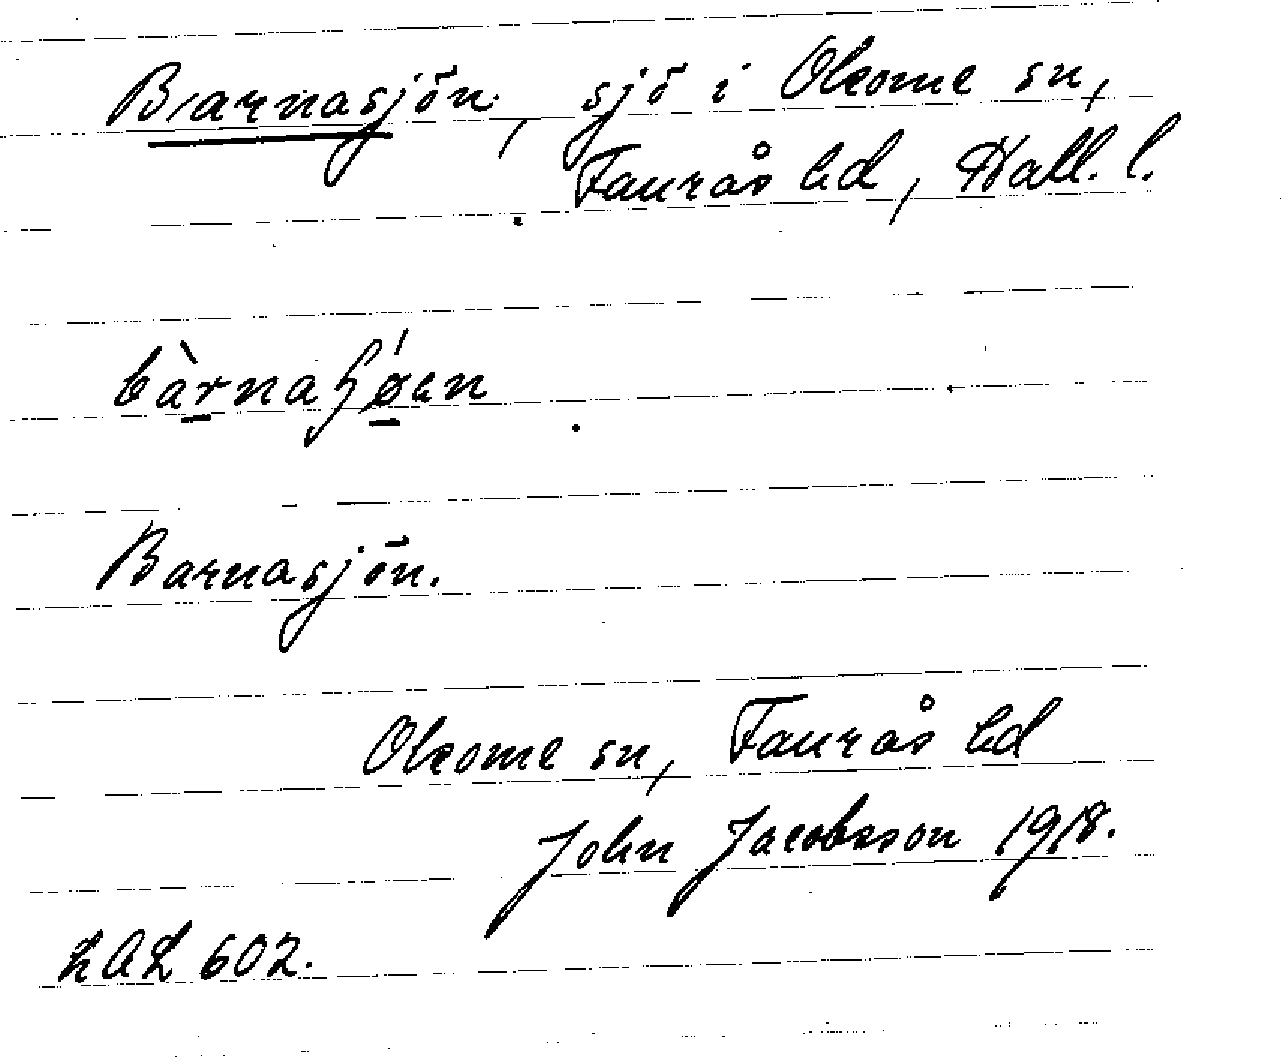 Barnasjön, sjö i Okome sn,
Faurås hd, Hall. l.
bàrnaɧǿ̠en
Barnasjön.
Okome sn, Faurås hd
John Jacobsson 1918.
LAL 602.